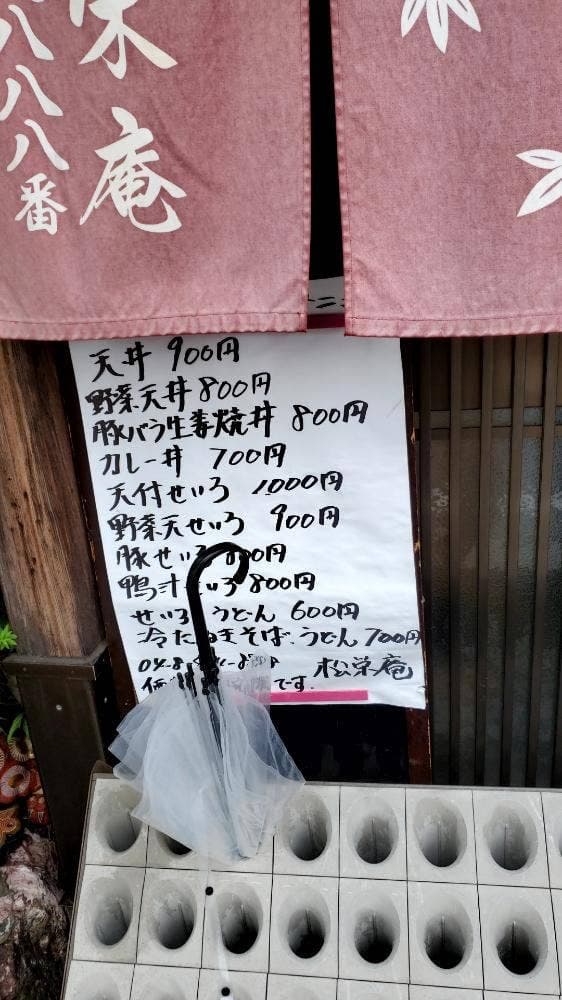 栄庵
八八八番
天丼 900円
野菜天丼 800円
豚バラ生姜焼丼 800円
カレー丼 700円
天付せいろ 1,000円
野菜天せいろ 900円
豚せいろ 800円
鴨汁せいろ 800円
せいろ うどん 600円
冷たぬきそば、うどん 700円
松栄庵
です。